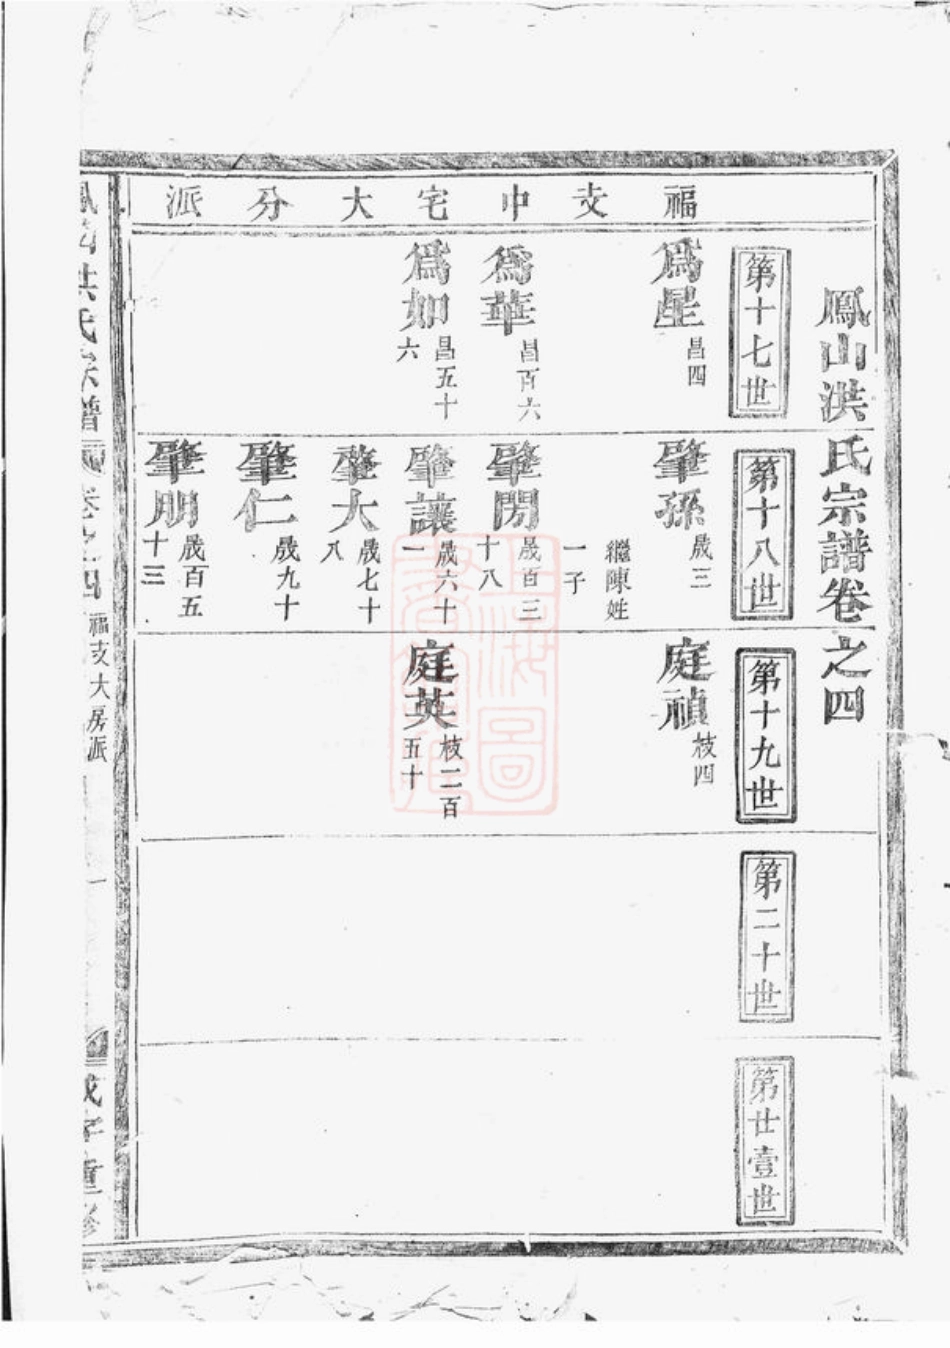 鳳山洪氏宗譜卷之四
福支中宅大分派
第十七世
為星
昌四
為華
昌百六
為如
昌五十
六
第十八世
肇孫
歲三
繼陳姓
一子
肇閔
歲百三
十八
肇讓
歲六十
一
肇大
歲七十
八
肇仁
歲九十
肇朋
歲百五
十三
第十九世
庭禎
枝四
庭英
枝二百
五十
第二十世
第廿壹世
鳳山洪氏宗譜
卷之四
福支大房派
一
重修